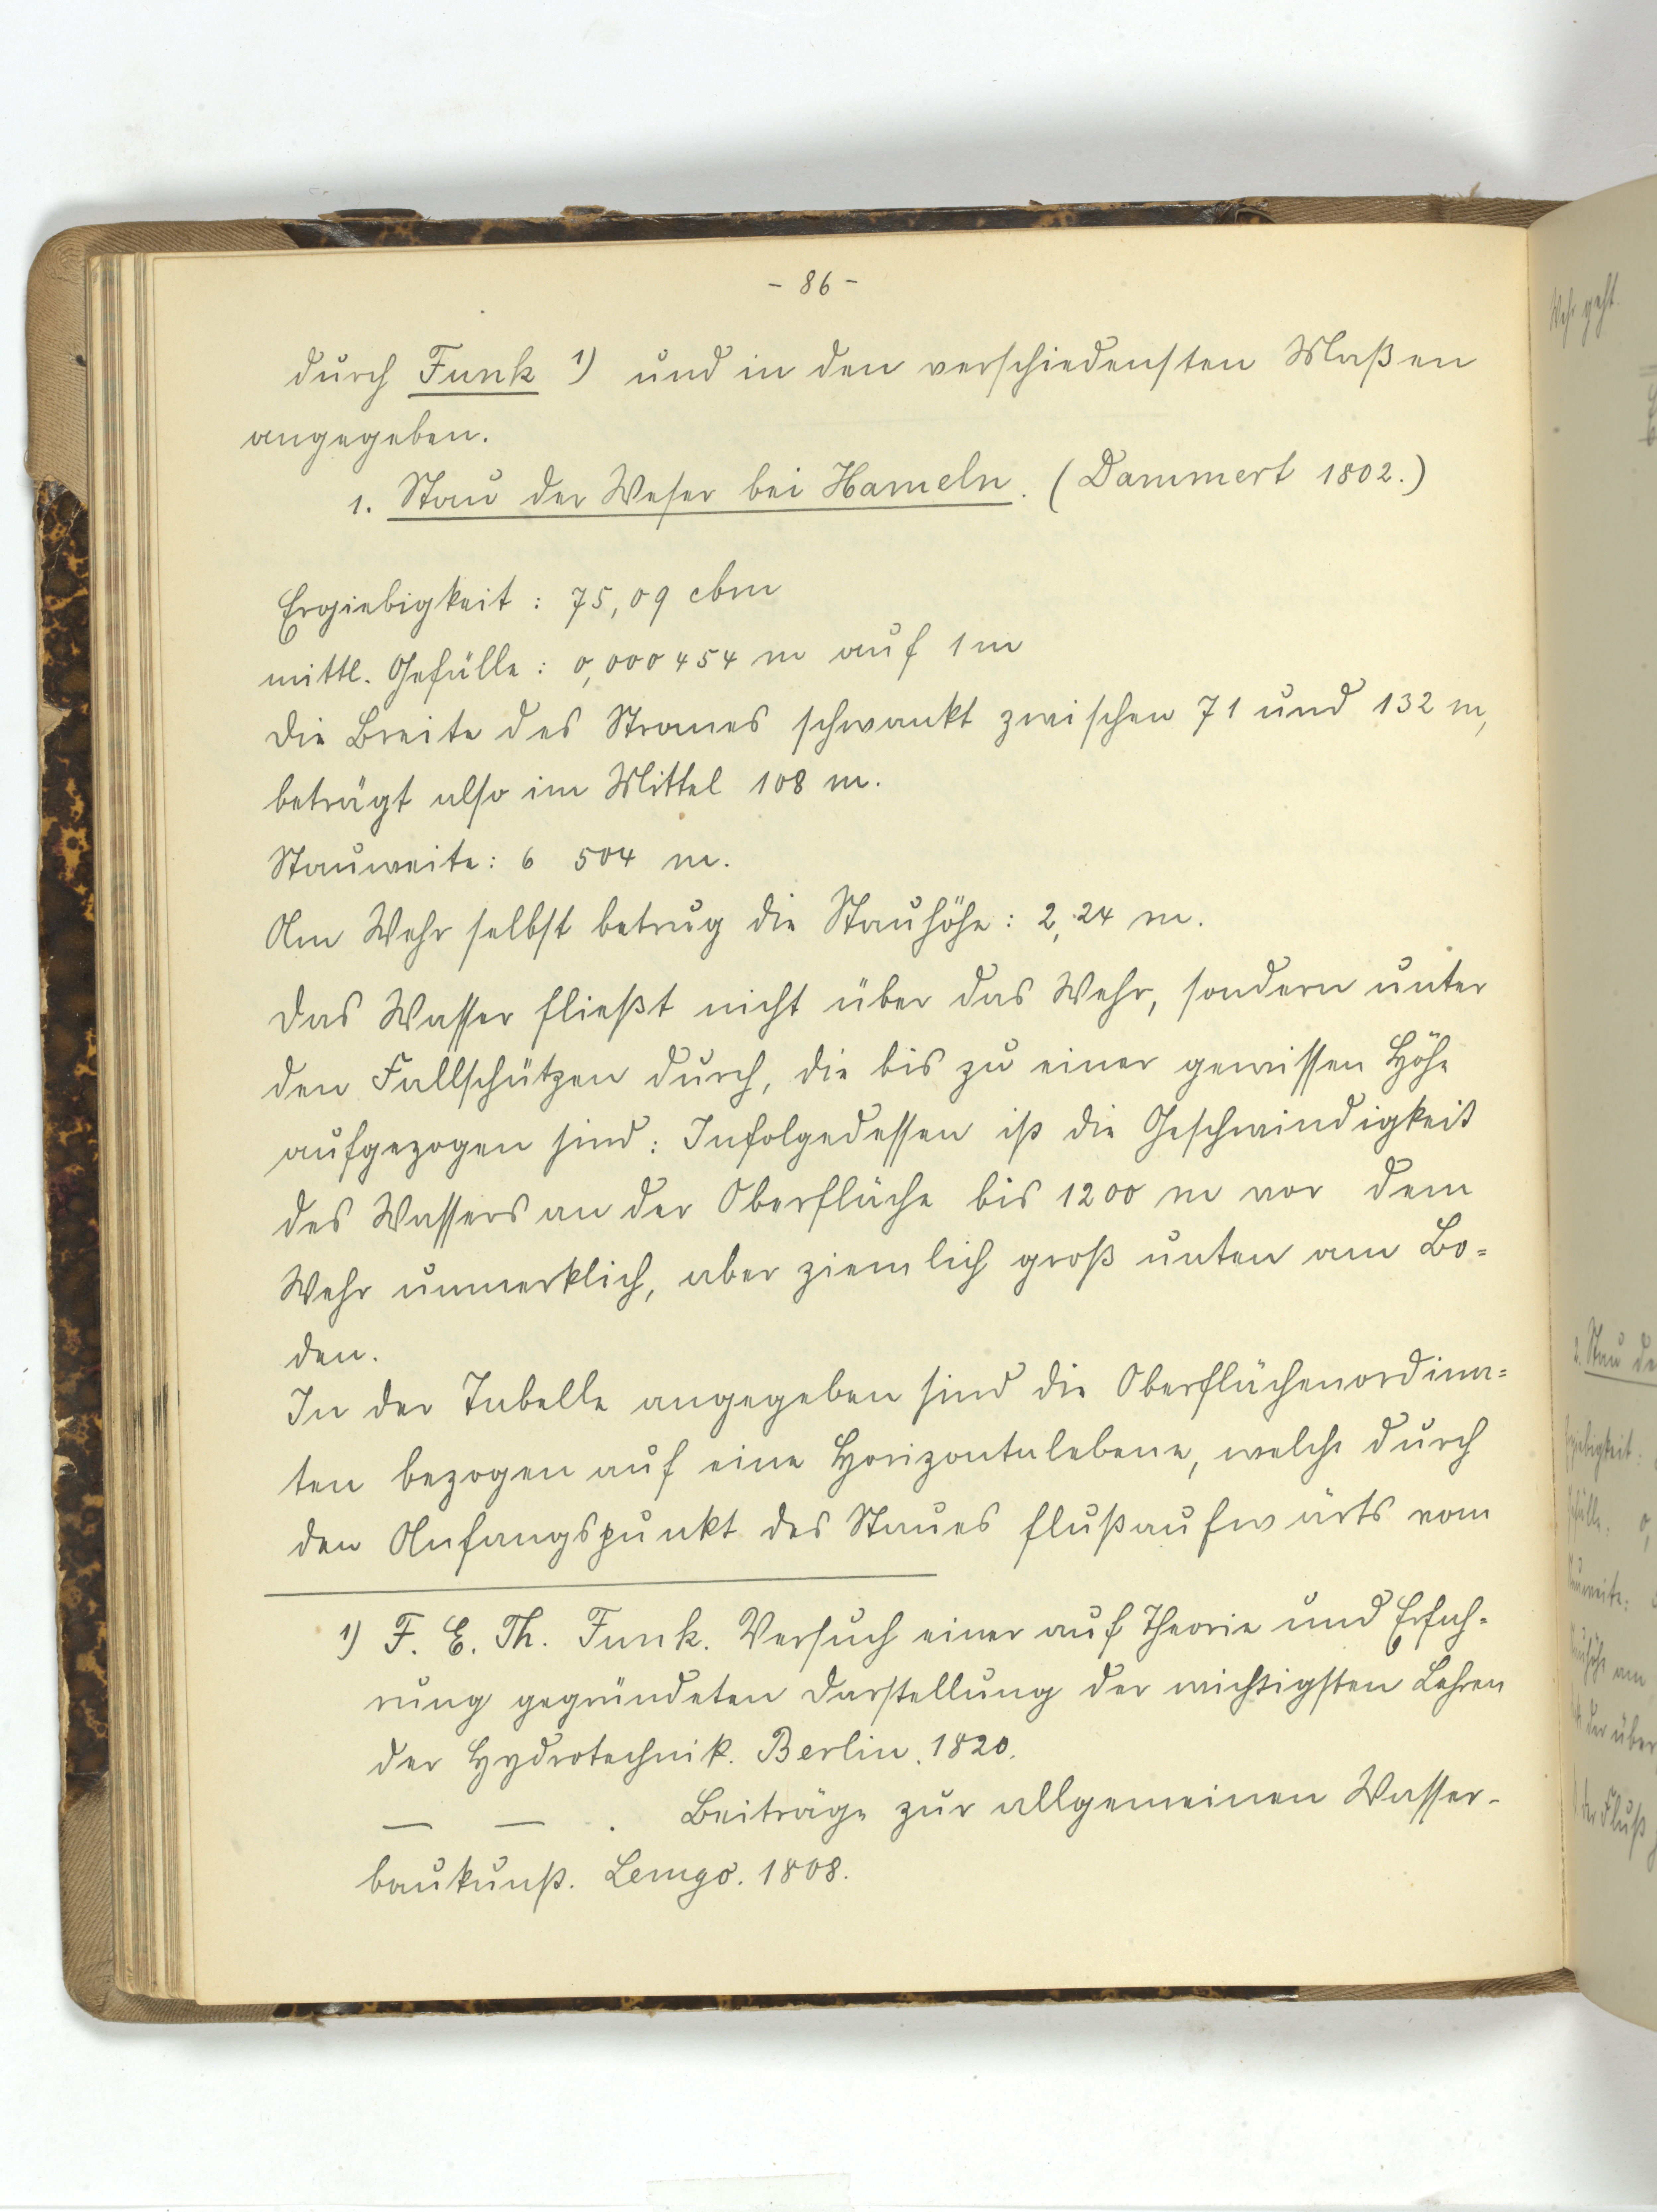 - 86 -
durch Funk 1) und in den verschiedensten Maßen
angegeben.
1. Stau der Weser bei Hameln. (Dammert 1802.)
Ergiebigkeit : 75,09 cbm
mittl. Gefälle : 0,000454 m auf 1 m
Die Breite des Stromes schwankt zwischen 71 und 132 m,
beträgt also im Mittel 108 m.
Stauweite: 6 504 m.
Am Wehr selbst betrug die Stauhöhe : 2,24 m.
Das Wasser fließt nicht über das Wehr, sondern unter
den Fallschützen durch, die bis zu einer gewissen Höhe
aufgezogen sind : Infolgedessen ist die Geschwindigkeit
des Wassers an der Oberfläche bis 1200 m vor dem
Wehr unmerklich, aber ziemlich groß unten am Bo=
den.
In der Tabelle angegeben sind die Oberflächenordina=
ten bezogen auf eine Horizontalebene, welche durch
den Anfangspunkt des Staues flußaufwärts vom
1) F. E. Th. Funk. Versuch einer auf Theorie und Erfah-
rung gegründeten Darstellung der wichtigsten Lehren
der Hydrotechnik. Berlin. 1820.
— — . Beiträge zur allgemeinen Wasser-
baukunst. Lemgo. 1808.
Wehr geht.
2. Stau de
der über
der Fluß